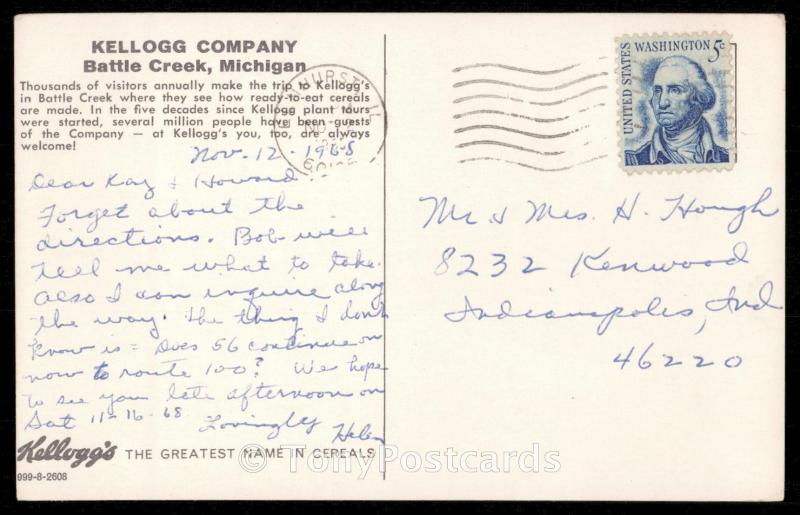 KELLOGG COMPANY
Battle Creek, Michigan
Thousands of visitors annually make the trip to Kellogg's
in Battle Creek where they see how ready-to-eat cereals
are made. In the five decades since Kellogg plant tours
were started, several million people have been guests
of the Company — at Kellogg's you, too, are always
welcome!
Nov. 12 - 1968
Dear Kay & Howard
Forget about the
directions. Bob will
tell me what to take.
Also I can inquire along
the way. The thing I don't
know is = Does 56 continue on
now to route 100? We hope
to see you late afternoon on
Sat 11-16-68
Lovingly
Helen
Kellogg's THE GREATEST NAME IN CEREALS
999-8-2608
UNITED STATES
WASHINGTON 5c
Mr & Mrs. H. Hough
8232 Kenwood
Indianapolis, Ind
46220
© TonyPostcards